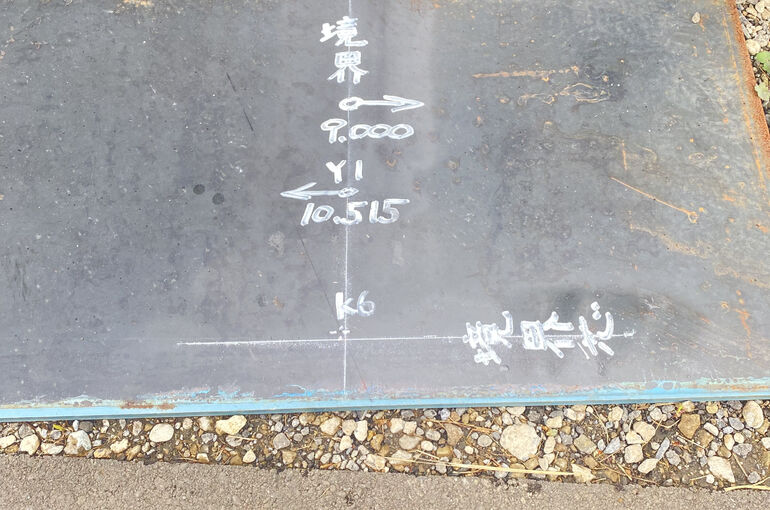 境界
9.000
Y1
10.515
K6
境界芯